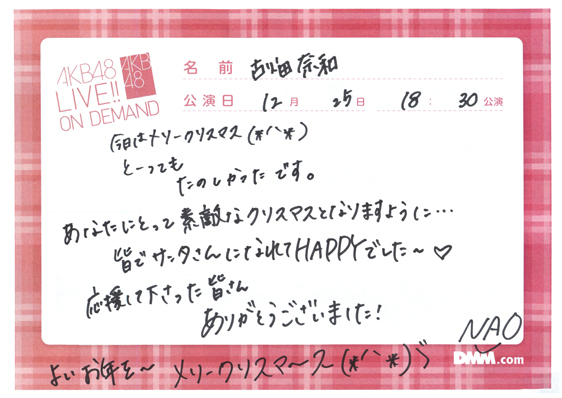 AKB48
LIVE!!
ON DEMAND
AKB
48
名前 古畑奈和
公演日 12月 25日 18:30公演
今日はメリークリスマス(*^^*)
とーっても
たのしかったです。
あなたにとって素敵なクリスマスとなりますように…
皆でサンタさんになれてHAPPYでした〜♡
応援して下さった皆さん
ありがとうございました!
NAO
DMM.com
よいお年を〜 メリークリスマース(*^^*)ゞ